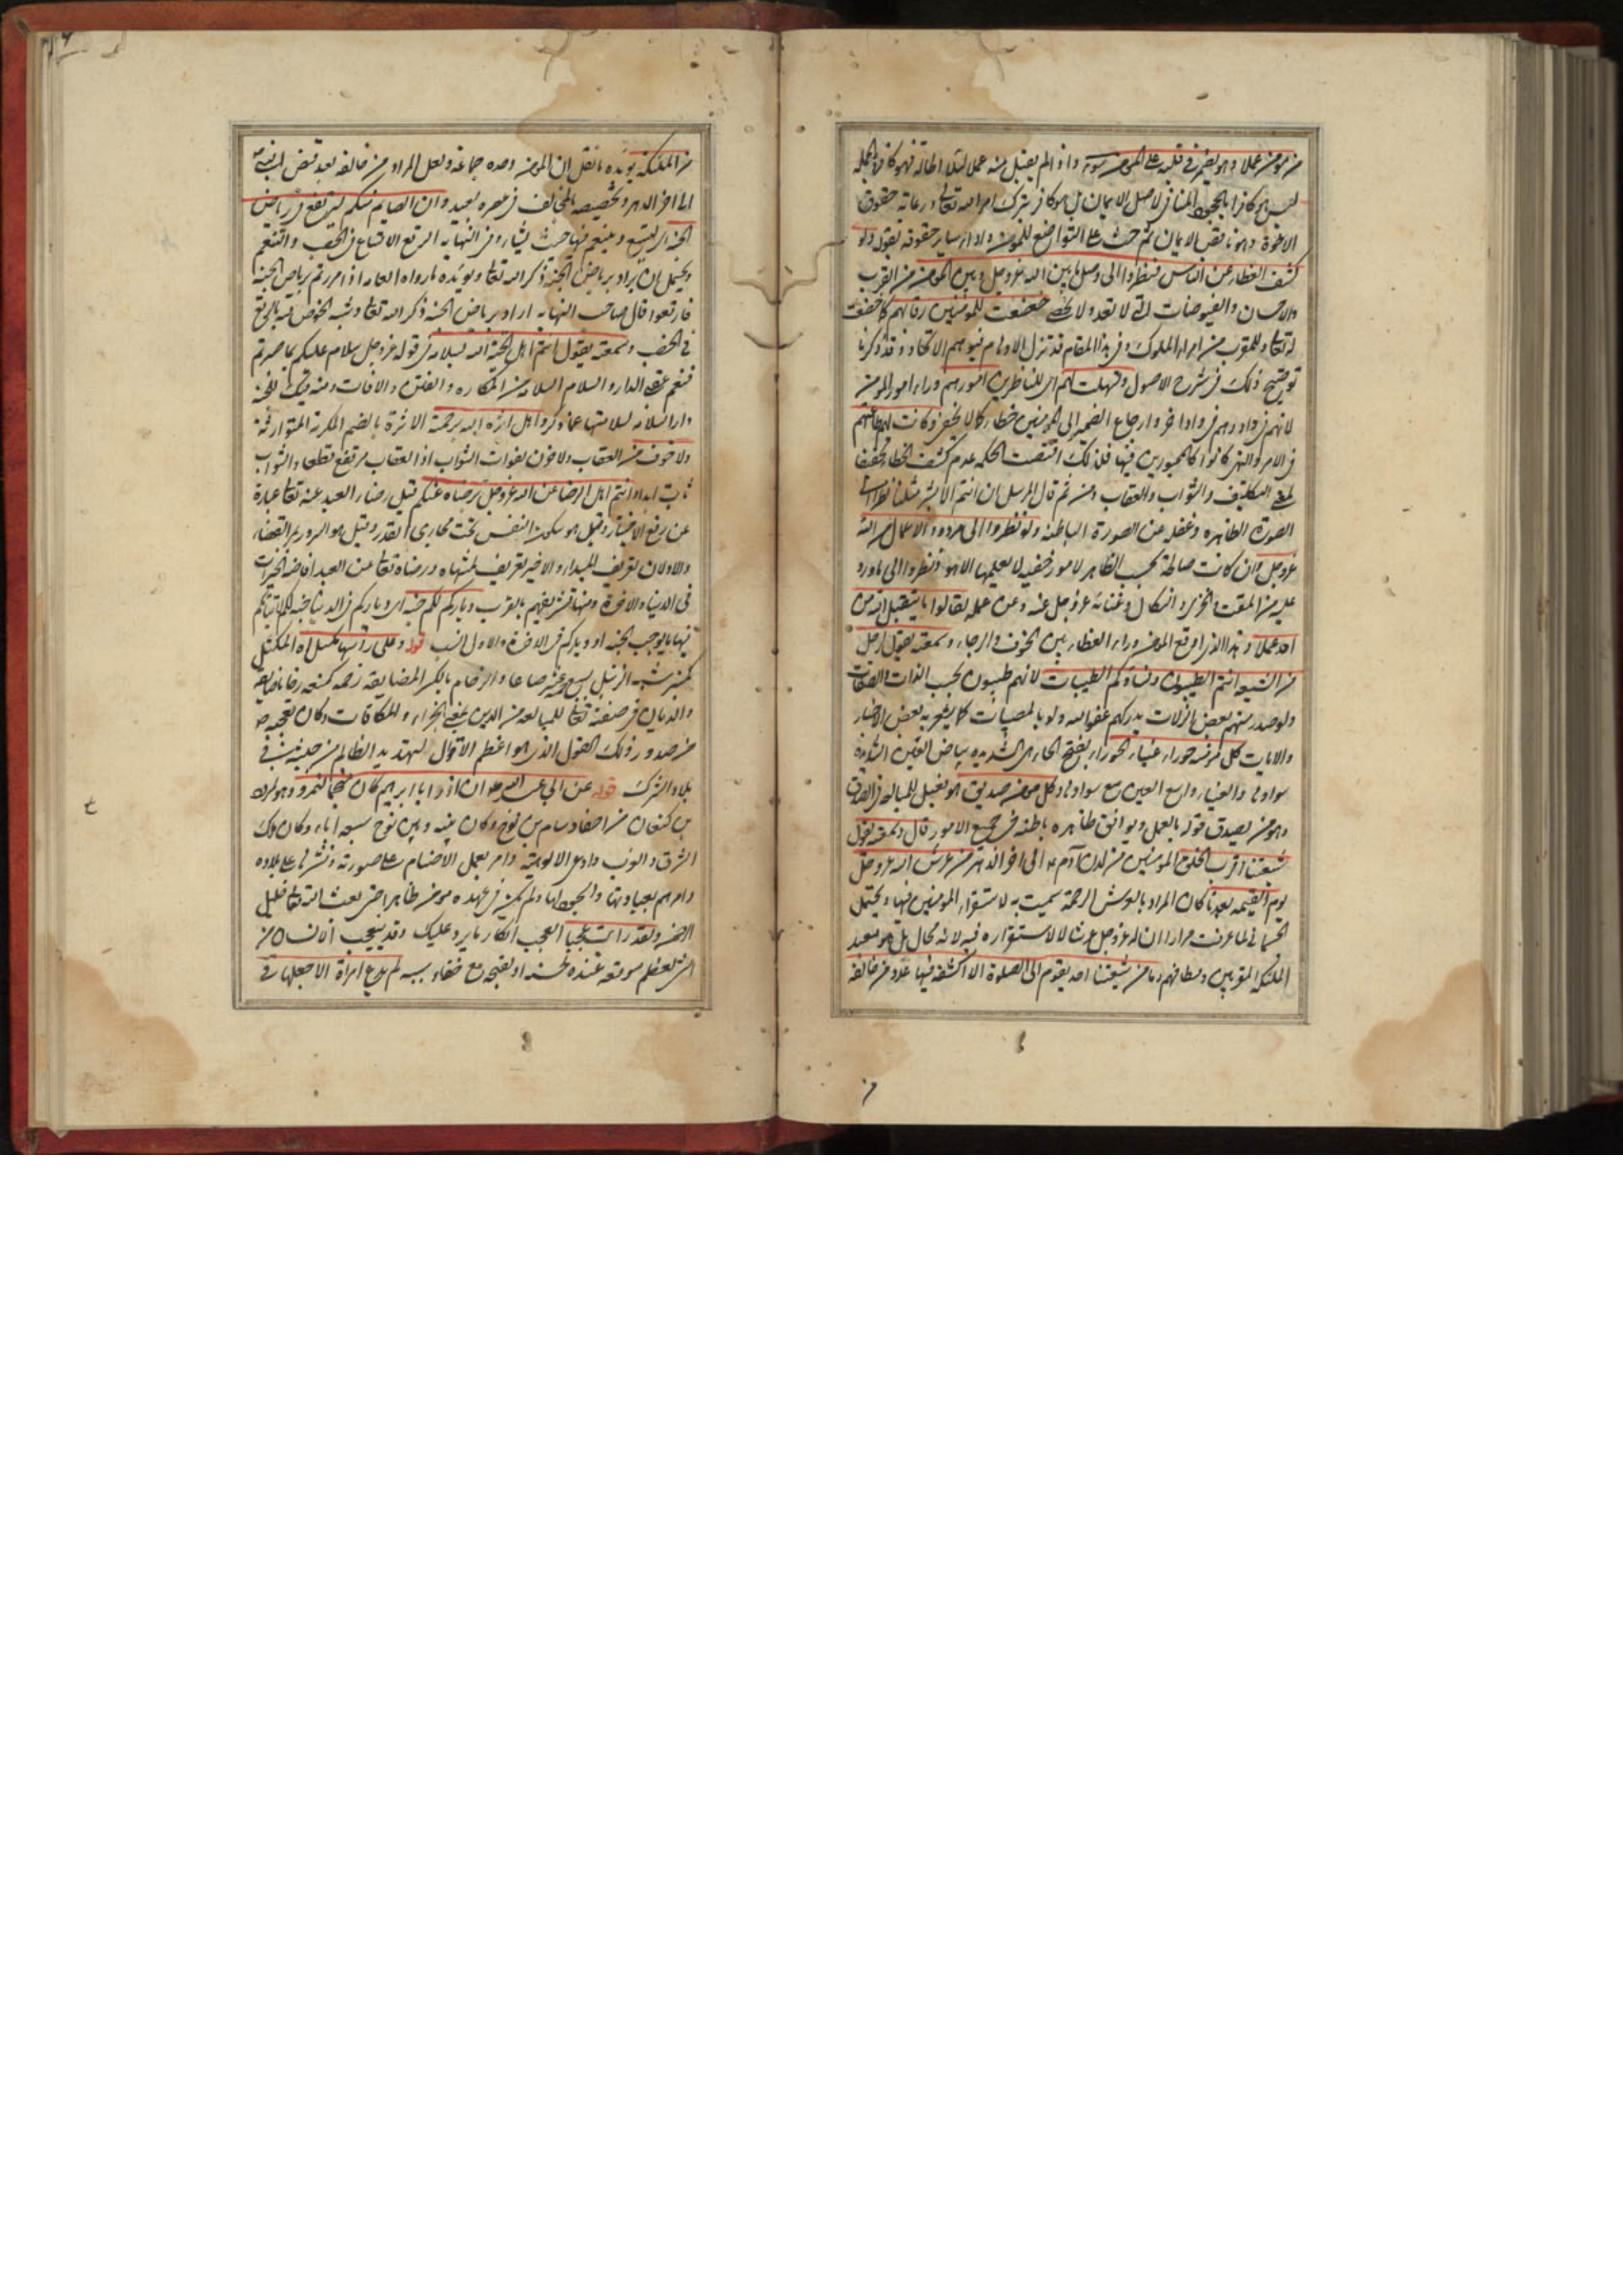 من مؤمن عملا وهو يضمر في قلبه على المؤمن سوء واذا لم يقبل منه عملا
ليس هو كافرا بالجحود المنافي لاصل الايمان بل هو كافر بترك امر الله تعالى ورعاية حقوق
الاخوة وهو ناقص الايمان ثم حث على التواضع للمؤمن واداء ساير حقوقه بقوله ولو
كشف الغطاء عن الناس فنظروا الى وصل ما بين الله عز وجل وبين المؤمن من القرب
والاحسان والفيوضات التي لا تعد ولا تحصى خضعت للمؤمنين رقابهم كما خضعت
توضيح ذلك في شرح الاصول وتسهلت لهم اي للناظرين امورهم وراء امور المؤمن
لانهم في واد وهم في واد اخر وارجاع الضمير الى المؤمنين خطاء كما لا يخفى وكانت لهم طاعتهم
في الامر والنهي كانوا كالمجبورين فيها فلذلك اقتضت الحكمة عدم كشف الغطاء تحقيقا
لمعنى التكليف والثواب والعقاب ومن ثم قال المرسل ان انتم الا بشر مثلنا نظرا الى
الصورة الظاهره وغفله عن الصورة الباطنة ولو نظروا الى مردود الاعمال من الله
عز وجل وان كانت صالحة بحسب الظاهر لامور خفيه لا يعلمها الا هو ونظروا الى ما ورد
عليه من المقت والخزي والنكال وغنائه عز وجل عنه وعن عمله لقالوا ما يتقبل الله من
احد عملا وهذا الذي اوقع المؤمن وراء الغطاء بين الخوف والرجاء وسمعته يقول لرجل
من الشيعه انتم الطيبون ونساؤكم الطيبات لانهم طيبون بحسب الذات والصفات
ولو صدر منهم بعض الزلات يدركهم عفو الله ولو بالمصيبات كما يشعر به بعض الاخبار
والايات كل مؤمنة حوراء عيناء الحوراء بفتح الحاء هي الشديدة بياض العين الشديدة
سوادها والعيناء واسع العين مع سوادها وكل مؤمن صديق هو فعيل للمبالغة في الصدق
وهو من يصدق قوله بالعمل ويوافق ظاهره باطنه في جميع الامور قال وسمعته يقول
شيعتنا اقرب الخلق المؤمنين من لدن آدم الى اخر الدهر من عرش الله عز وجل
يوم القيمه بعدنا كان المراد بالعرش الرحمة سميت به لاستقرار المؤمنين فيها ويحتمل
الجسماني لما عرفت مرارا ان له عز وجل عرشا لا لاستقراره فيه لانه محال بل هو متعبد
الملئكة المقربين ومطافهم وما من شيعتنا احد يقوم الى الصلوة الا اكتنفه فيها عدد من خالفه
من الملئكة يؤيده ما نقل ان المؤمن وحده جماعة ولعل المراد من خالفه بعد قبض
الى اخر الدهر وتخصيصه بالمخالف في عصره بعيد وان الصايم منكم ليرتع في رياض
الجنة اي ليتسع ويتنعم فيها حيث يشاء وفي النهاية الرتع الاتساع في الخصب والتنعم
ويحتمل ان يراد برياض الجنة ذكر الله تعالى ويؤيده ما رواه العامه اذا مررتم برياض الجنة
فارتعوا قال صاحب النهاية اراد برياض الجنة ذكر الله تعالى وشبه الخوض فيه بالرتع
في الخصب وسمعته يقول انتم اهل تحية الله بسلامه في قوله عز وجل سلام عليكم بما صبرتم
فنعم عقبى الدار والسلام السلامة من المكاره والفتن والافات ومنه قيل للجنة
دار السلام لسلامتها عما ذكر واهل اثرة الله برحمته الاثرة بالضم المكرمة المتوارثة
ولا خوف من العقاب ولا حزن لفوات الثواب اذ العقاب مرتفع قطعا والثواب
ثابت ابدا وانتم اهل الرضا عن الله عز وجل برضاه عنكم قيل رضاء العبد عنه تعالى عبارة
عن رفع الاختيار وقيل هو سكون النفس تحت مجاري القدر وقيل هو السرور بمر القضاء
والاولان تعريف للمبداء والاخير تعريف لمنتهاه ورضاه تعالى عن العبد افاضة الخيرات
في الدنيا والاخرة ومنها تشريفهم بالقرب ودياركم لكم جنة اي دياركم في الدنيا جنة لكم
فيها ما يوجب الجنة او دياركم في الاخرة والاول انسب قوله وعلى راسها مكتل اه المكتل
كمنبر شبه الزنبيل يسع خمسة عشر صاعا والزحام بالكسر المضايقة زحمه كمنعه زحاما ضايقه
والديان في صفته تعالى للمبالغه من الدين بمعنى الجزاء والمكافات وكان تعجبه
من صدور ذلك القول الذي هو اعظم الاقوال لتهديد الظالم من حبشية في
بلاد الشرك قوله عن ابي عبد الله ان آزر ابا ابراهيم كان منجما لنمرود وهو نمرود
بن كنعان من احفاد سام بن نوح وكان بينه وبين نوح سبعة اباء وكان ملك
الشرق والغرب وادعى الالوهية وامر بعمل الاصنام على صورته ونشرها على بلاده
وامرهم بعبادتها والسجود لها ولم يكن في عهده مؤمن ظاهرا حتى بعث الله تعالى خليل
الرحمن ولقد رايت عجبا العجب انكار ما يرد عليك وقد يتعجب الانسان من
الشئ لعظم موقعه عنده لحسنه او لقبحه مع خفاء سببه لم يدع امراة الا جعلها في